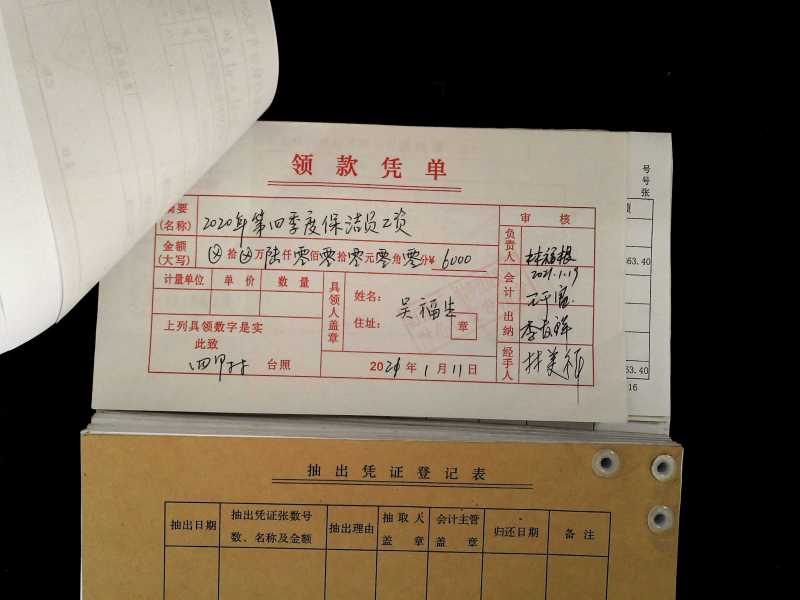 领款凭单
摘要
(名称)
2020年第四季度保洁员工资
金额
(大写)
⊗拾⊗万陆仟零佰零拾零元零角零分¥6000
计量单位 单价 数量
上列具领数字是实
此致
四甲村 台照
具领人盖章
姓名: 吴福生
住址:
章
2021年1月11日
审核
负责人 林福根
2021.1.19
会计
出纳 李友祥
经手人 林美
号
号
张
63.40
63.40
16
抽出凭证登记表
抽出日期 抽出凭证张数号数、名称及金额 抽出理由 抽取人盖章 会计主管盖章 归还日期 备注